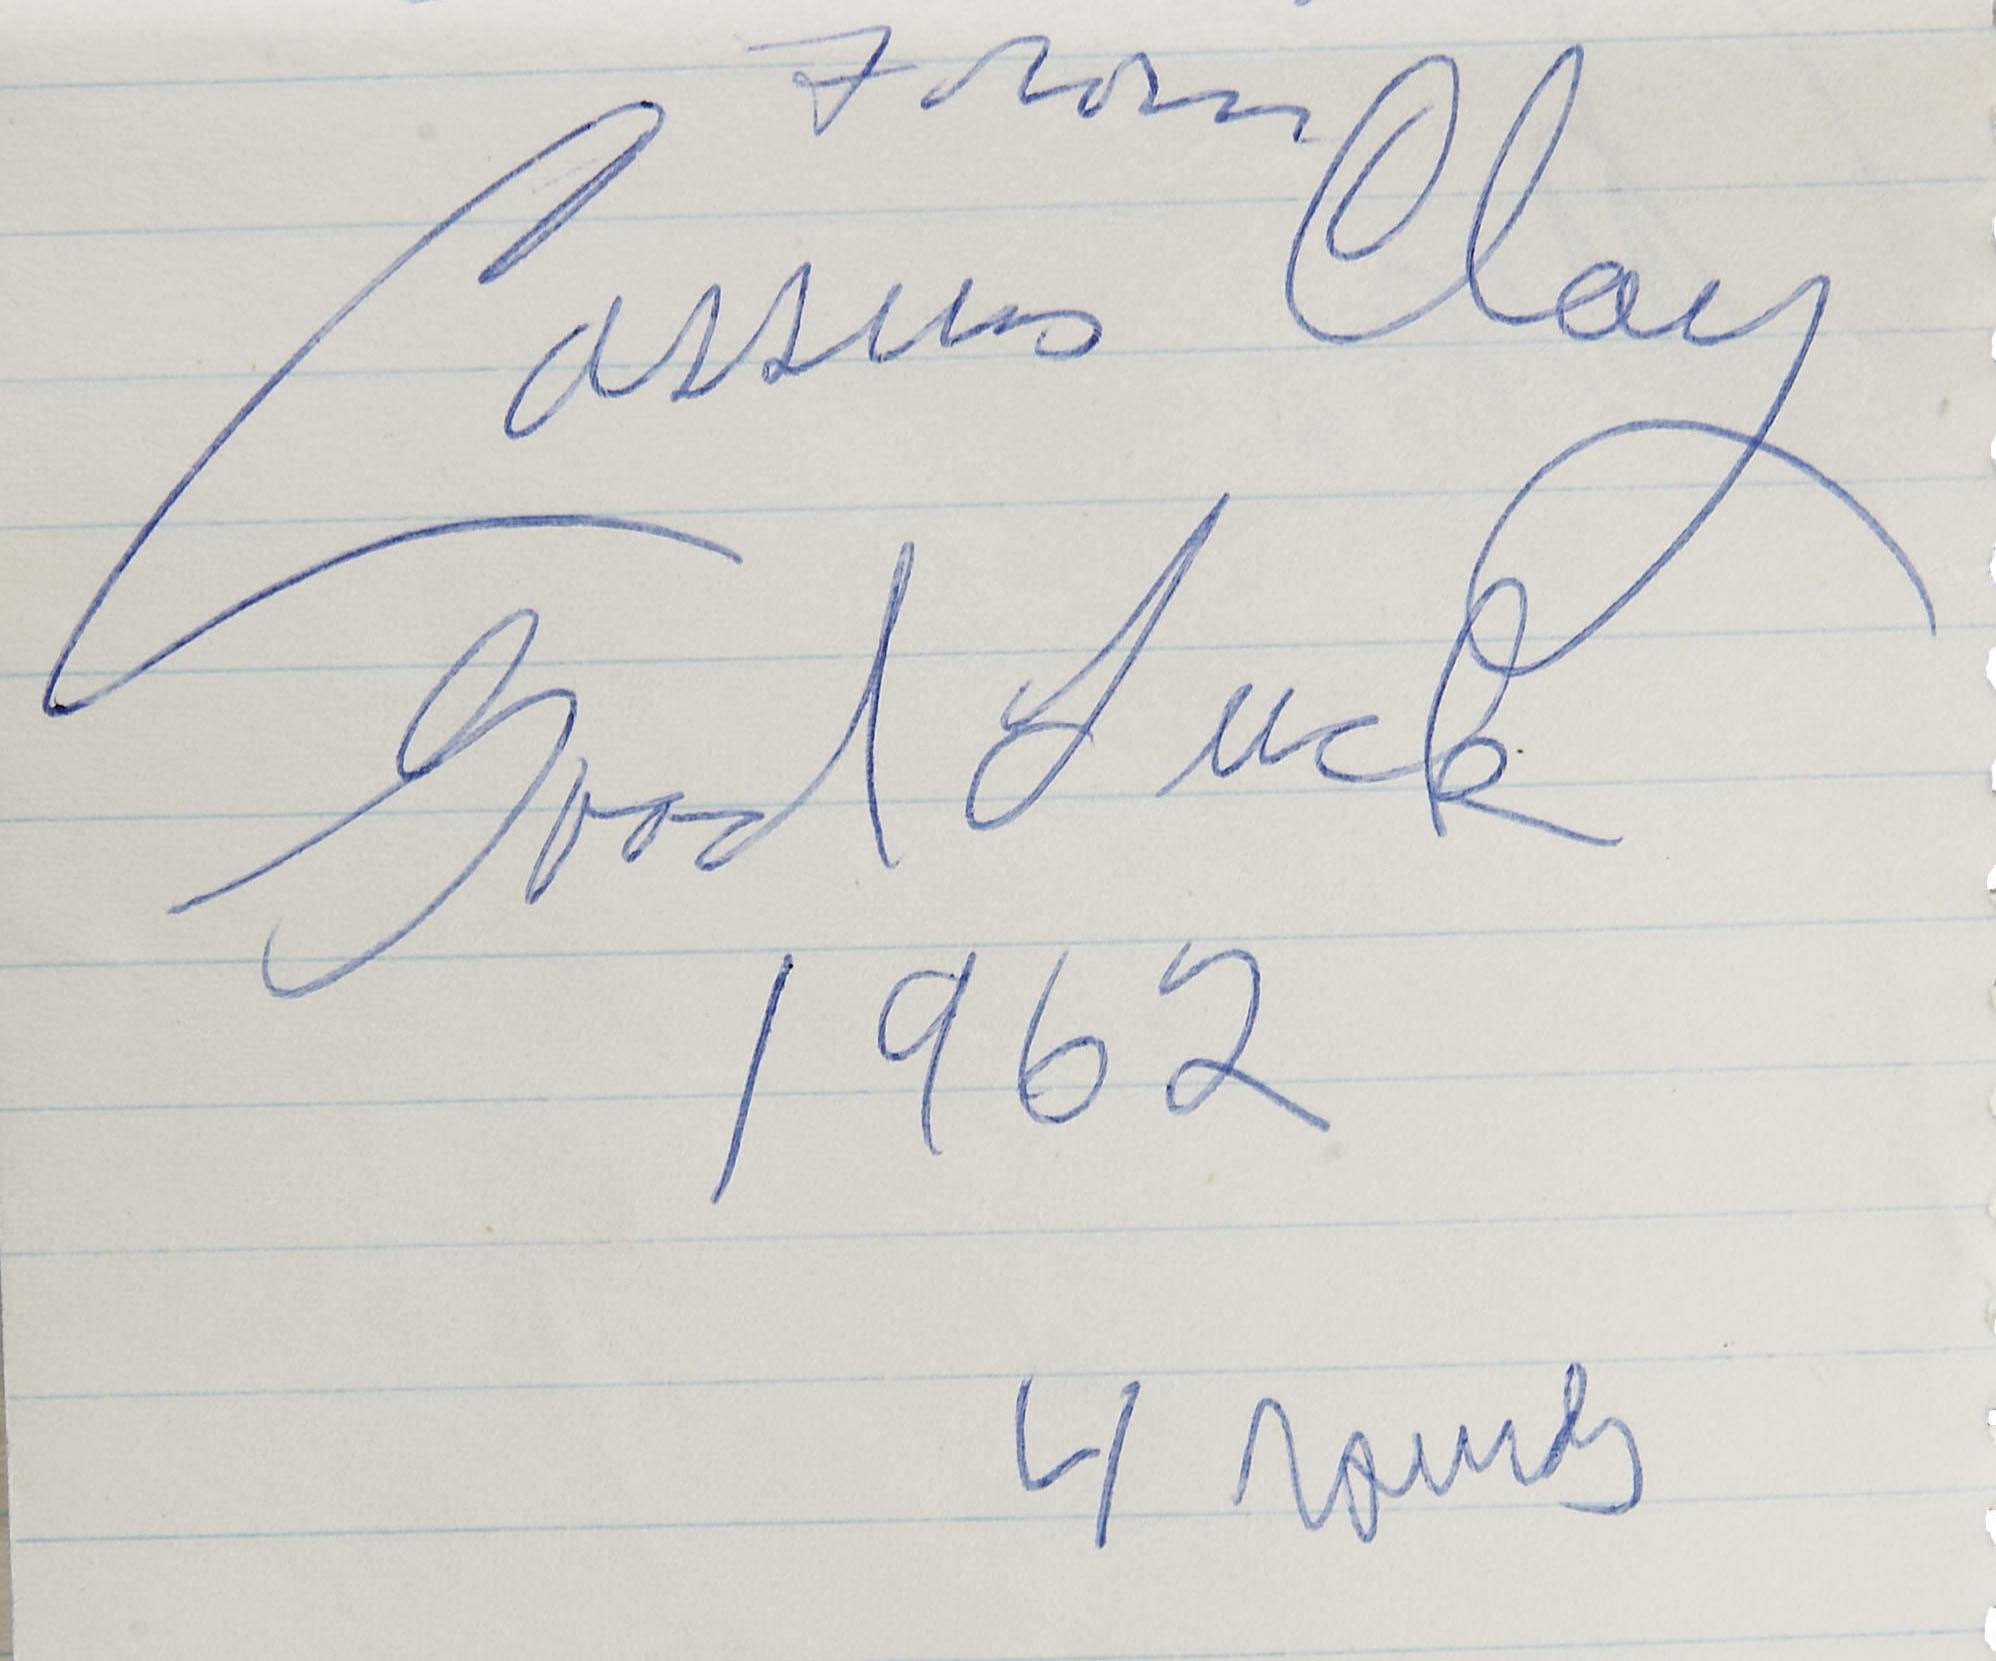 From
Cassius Clay
Good Luck
1962
4 rounds